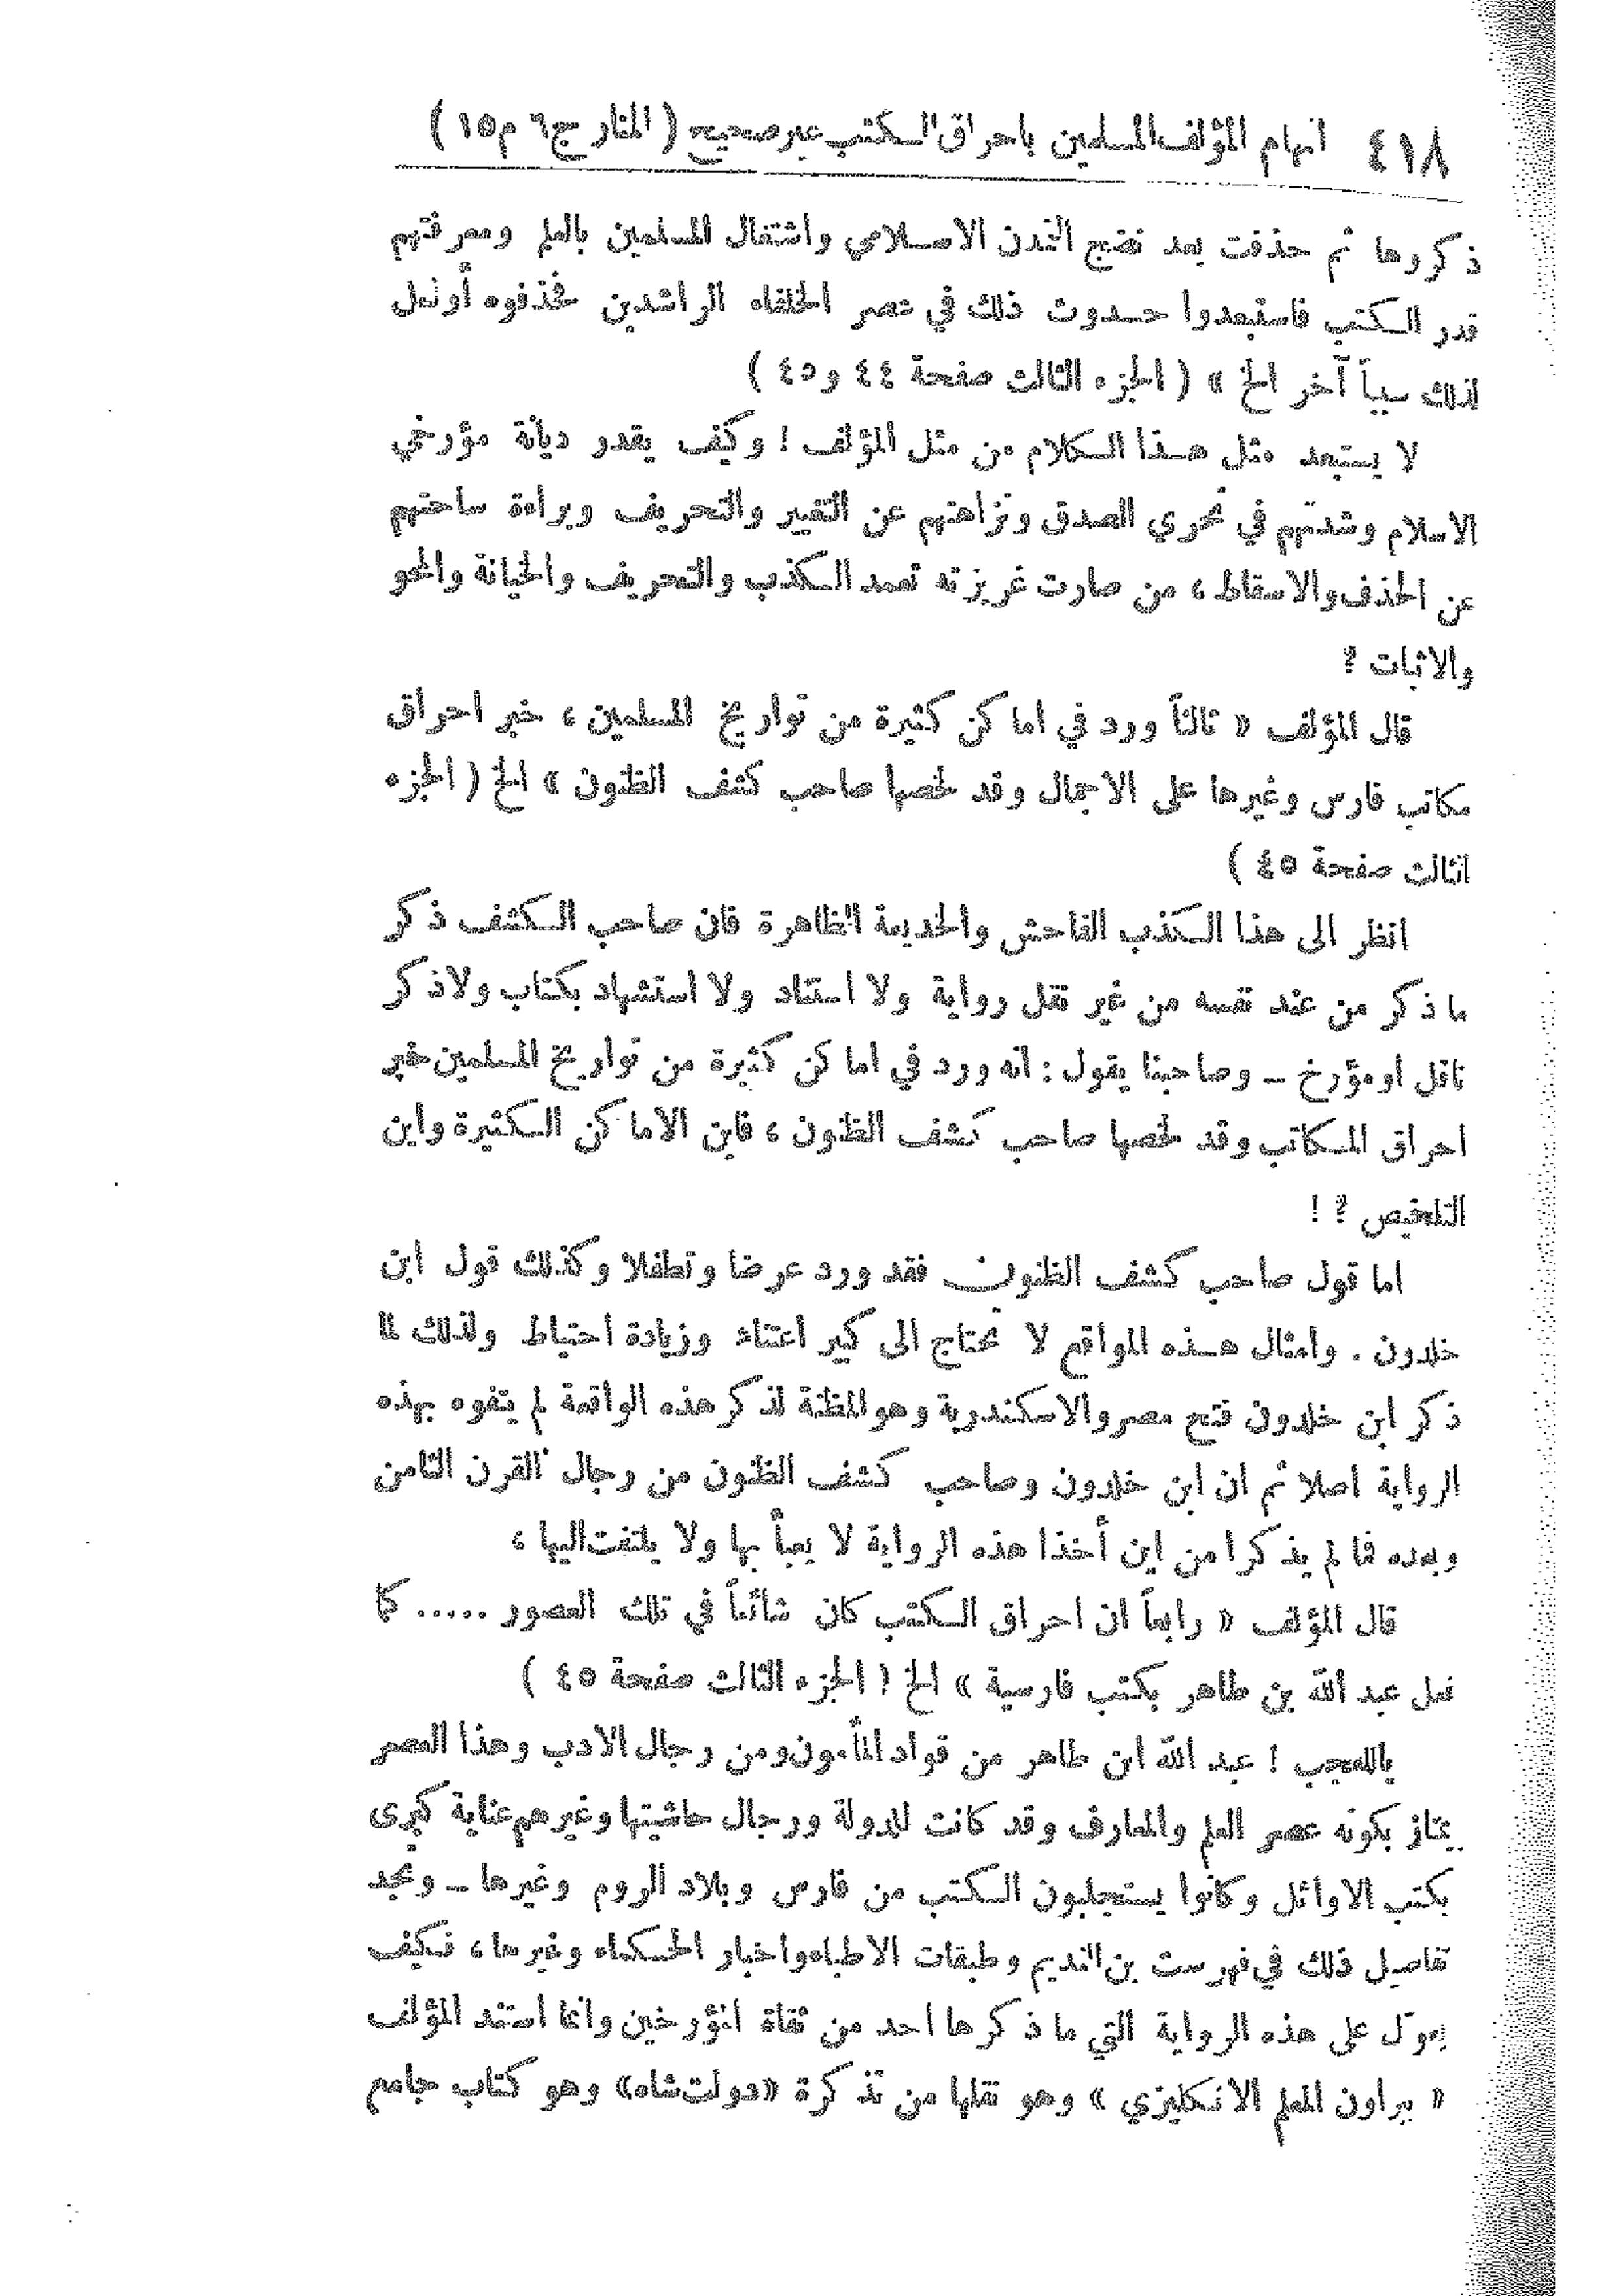 ٤١٨ اتهام المؤلف المسلمين باحراق الكتب غير صحيح ( المنار ج٦ م١٥ )
ذكروها ثم حذفت بعد نضج التمدن الاسلامي واشتغال المسلمين بالعلم ومعرفتهم
قدر الكتب فاستبعدوا حدوث ذلك في عصر الخلفاء الراشدين فحذفوه أو لعل
لذلك سبباً آخر الخ » ( الجزء الثالث صفحة ٤٤ و٤٥ )
لا يستبعد مثل هذا الكلام من مثل المؤلف ! وكيف يقدر ديانة مؤرخي
الاسلام وشدتهم في تحري الصدق ونزاهتهم عن التغيير والتحريف وبراءة ساحتهم
عن الحذف والاسقاط ، من صارت غريزته تعمد الكذب والتحريف والخيانة والمحو
والاثبات ؟
قال المؤلف « ثالثاً ورد في اماكن كثيرة من تواريخ المسلمين ، خبر احراق
مكاتب فارس وغيرها على الاجمال وقد لخصها صاحب كشف الظنون » الخ ( الجزء
الثالث صفحة ٤٥ )
انظر الى هذا الكذب الفاحش والخديعة الظاهرة فان صاحب الكشف ذكر
ما ذكر من عند نفسه من غير نقل رواية ولا استناد ولا استشهاد بكتاب ولا ذكر
ناقل او مؤرخ – وصاحبنا يقول : انه ورد في اماكن كثيرة من تواريخ المسلمين خبر
احراق المكاتب وقد لخصها صاحب كشف الظنون ، فاين الاماكن الكثيرة واين
التلخيص ؟ !
اما قول صاحب كشف الظنون فقد ورد عرضا وتطفلا وكذلك قول ابن
خلدون . وامثال هذه المواقع لا تحتاج الى كبير اعتناء وزيادة احتياط ولذلك لما
ذكر ابن خلدون فتح مصر والاسكندرية وهو المظنة لذكر هذه الواقعة لم يتفوه بهذه
الرواية اصلا ثم ان ابن خلدون وصاحب كشف الظنون من رجال القرن الثامن
وبعده فما لم يذكرا من اين أخذا هذه الرواية لا يعبأ بها ولا يلتفت اليها ،
قال المؤلف « رابعاً ان احراق الكتب كان شائعاً في تلك العصور ..... كما
فعل عبد الله بن طاهر بكتب فارسية » الخ ( الجزء الثالث صفحة ٤٥ )
ياللعجب ! عبد الله ابن طاهر من قواد المأمون ومن رجال الادب وهذا العصر
يمتاز بكونه عصر العلم والمعارف وقد كانت للدولة ورجال حاشيتها وغيرهم عناية كبرى
بكتب الاوائل وكانوا يستجلبون الكتب من فارس وبلاد الروم وغيرها – وتجد
تفاصيل ذلك في فهرست بن النديم وطبقات الاطباء واخبار الحكماء وغيرها ، فكيف
يعوّل على هذه الرواية التي ما ذكرها احد من ثقاة المؤرخين وانما استند المؤلف
« ببراون المعلم الانكليزي » وهو نقلها من تذكرة «دولت شاه» وهو كتاب جامع